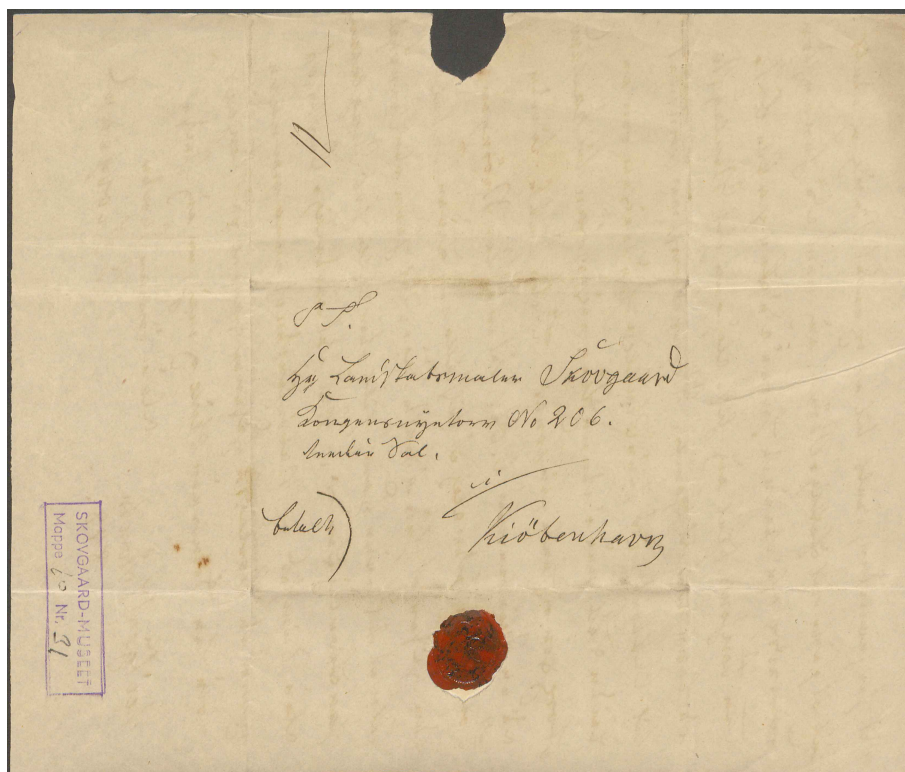 S. T.
Hr Landskabsmaler Skovgaard
Kongensnÿetorv No 206.
anden Sal.
i
betalt
Kiöbenhavn
SKOVGAARD-MUSEET
Mappe Nr. 31